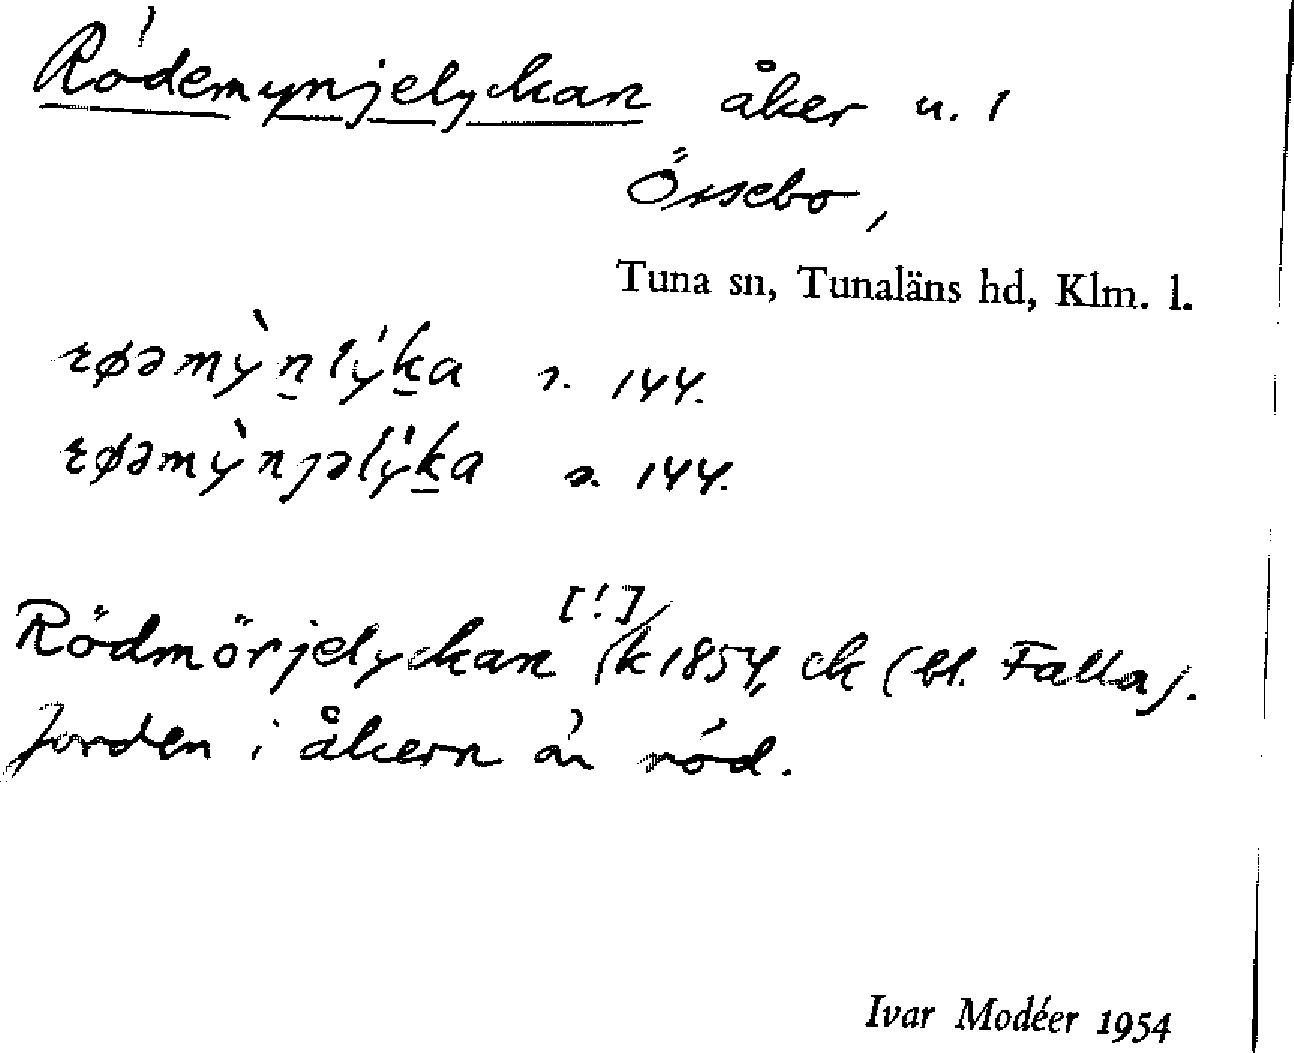 Rödemynjelyckan åker u. 1
Össebo,
Tuna sn, Tunaläns hd, Klm. l.
røəmỳn̲lý̍k̲a s. 144.
røəmỳnjəlý̍k̲a s. 144.
Rödmörjelyckan [!] (k 1854, ck (bl. Falla).
Jorden i åkern är röd.
Ivar Modéer 1954